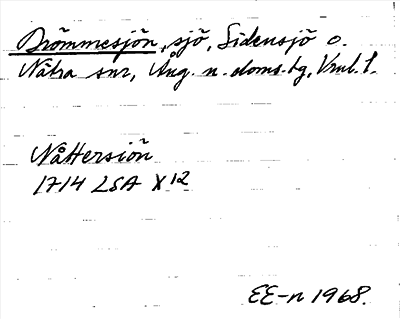 Drömmesjön, sjö, Sidensjö o.
Nätra snr, Ång. n. doms.hg, Vnl. l.
Nåttersiön
1714 LSA X12
EE-n 1968.